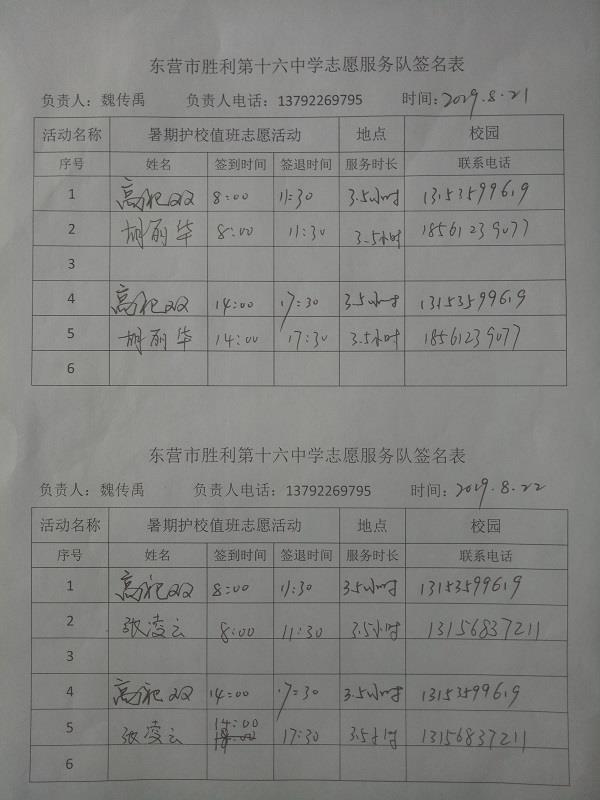 东营市胜利第十六中学志愿服务队签名表
负责人：魏传禹 负责人电话：13792269795 时间：2019.8.21
活动名称 暑期护校值班志愿活动 地点 校园
序号 姓名 签到时间 签退时间 服务时长 联系电话
1 高双 8:00 11:30 3.5小时 13153599619
2 胡丽华 8:00 11:30 3.5小时 18561239077
3
4 高双 14:00 17:30 3.5小时 13153599619
5 胡丽华 14:00 17:30 3.5小时 18561239077
6
东营市胜利第十六中学志愿服务队签名表
负责人：魏传禹 负责人电话：13792269795 时间：2019.8.22
活动名称 暑期护校值班志愿活动 地点 校园
序号 姓名 签到时间 签退时间 服务时长 联系电话
1 高双 8:00 11:30 3.5小时 13153599619
2 张凌云 8:00 11:30 3.5小时 13156837211
3
4 高双 14:00 17:30 3.5小时 13153599619
5 张凌云 14:00 17:30 3.5小时 13156837211
6